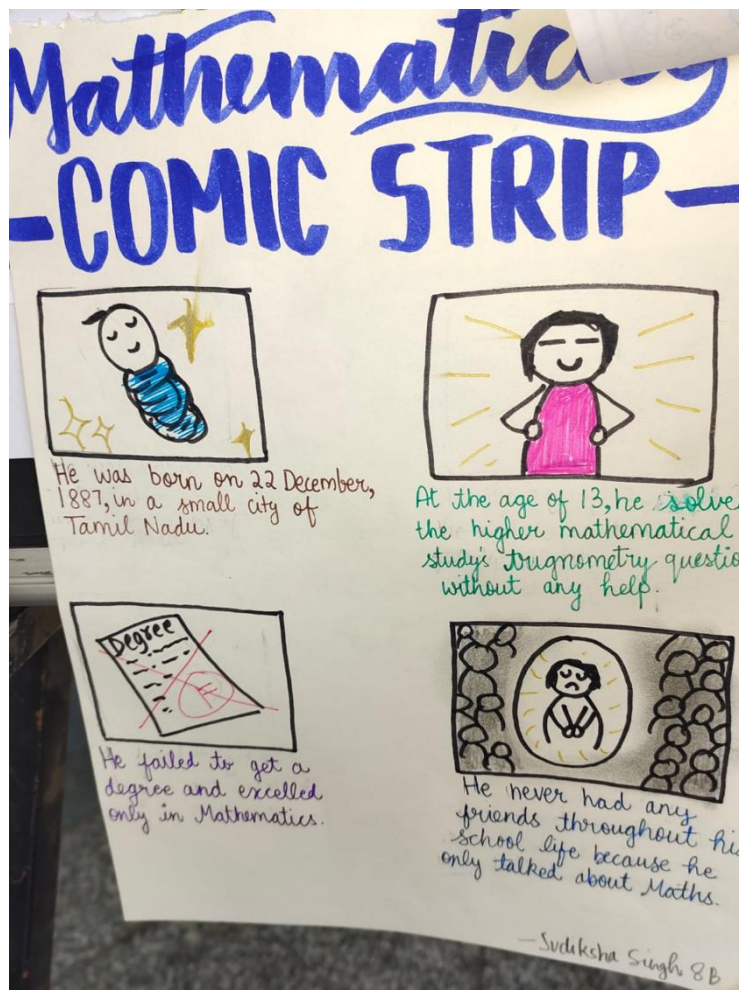 Mathematics
-COMIC STRIP-
He was born on 22 December,
1887, in a small city of
Tamil Nadu.
At the age of 13, he solve
the higher mathematical
study's trugnometry questio
without any help.
Degree
F
He failed to get a
degree and excelled
only in Mathematics.
He never had any
friends throughout his
school life because he
only talked about Maths.
- Sudiksha Singh 8B